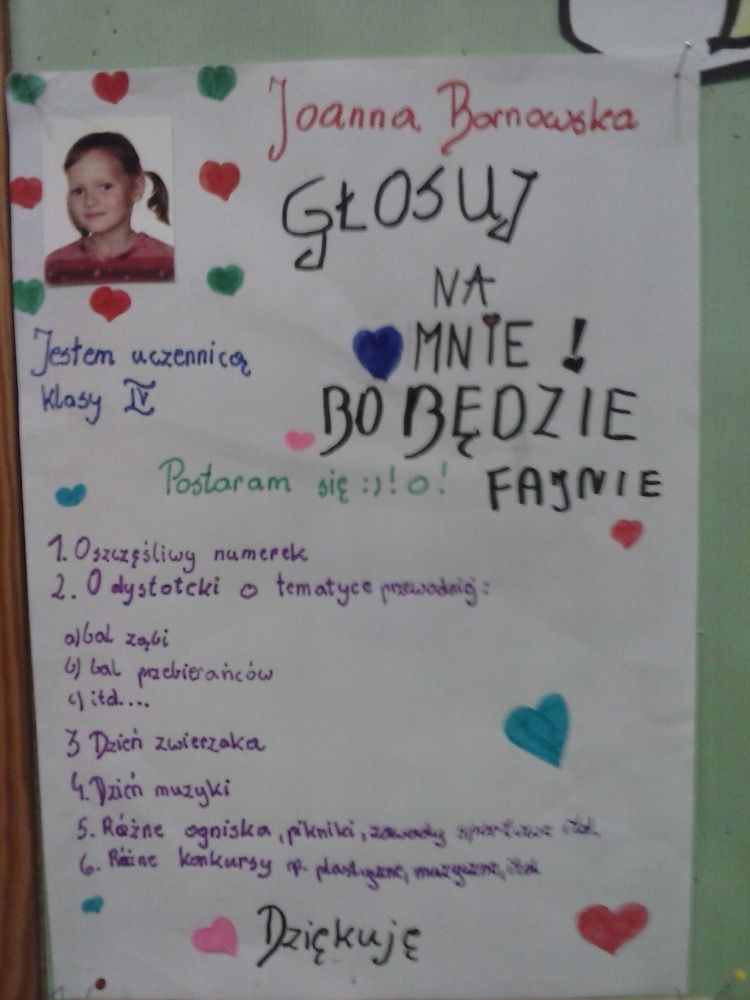 Joanna Bornowska
GŁOSUJ
NA
MNIE !
BO BĘDZIE
FAJNIE
Jestem uczennicą
klasy IV
Postaram się :)! o!
1. O szczęśliwy numerek
2. O dystotcki o tematyce przewodniej:
a) bal ząbi
b) bal przebierańców
c) itd....
3 Dzień zwierzaka
4. Dzień muzyki
5. Różne ogniska, pikniki, zawody sportowe itd.
6. Różne konkursy np. plastyczne, muzyczne, itd.
Dziękuję